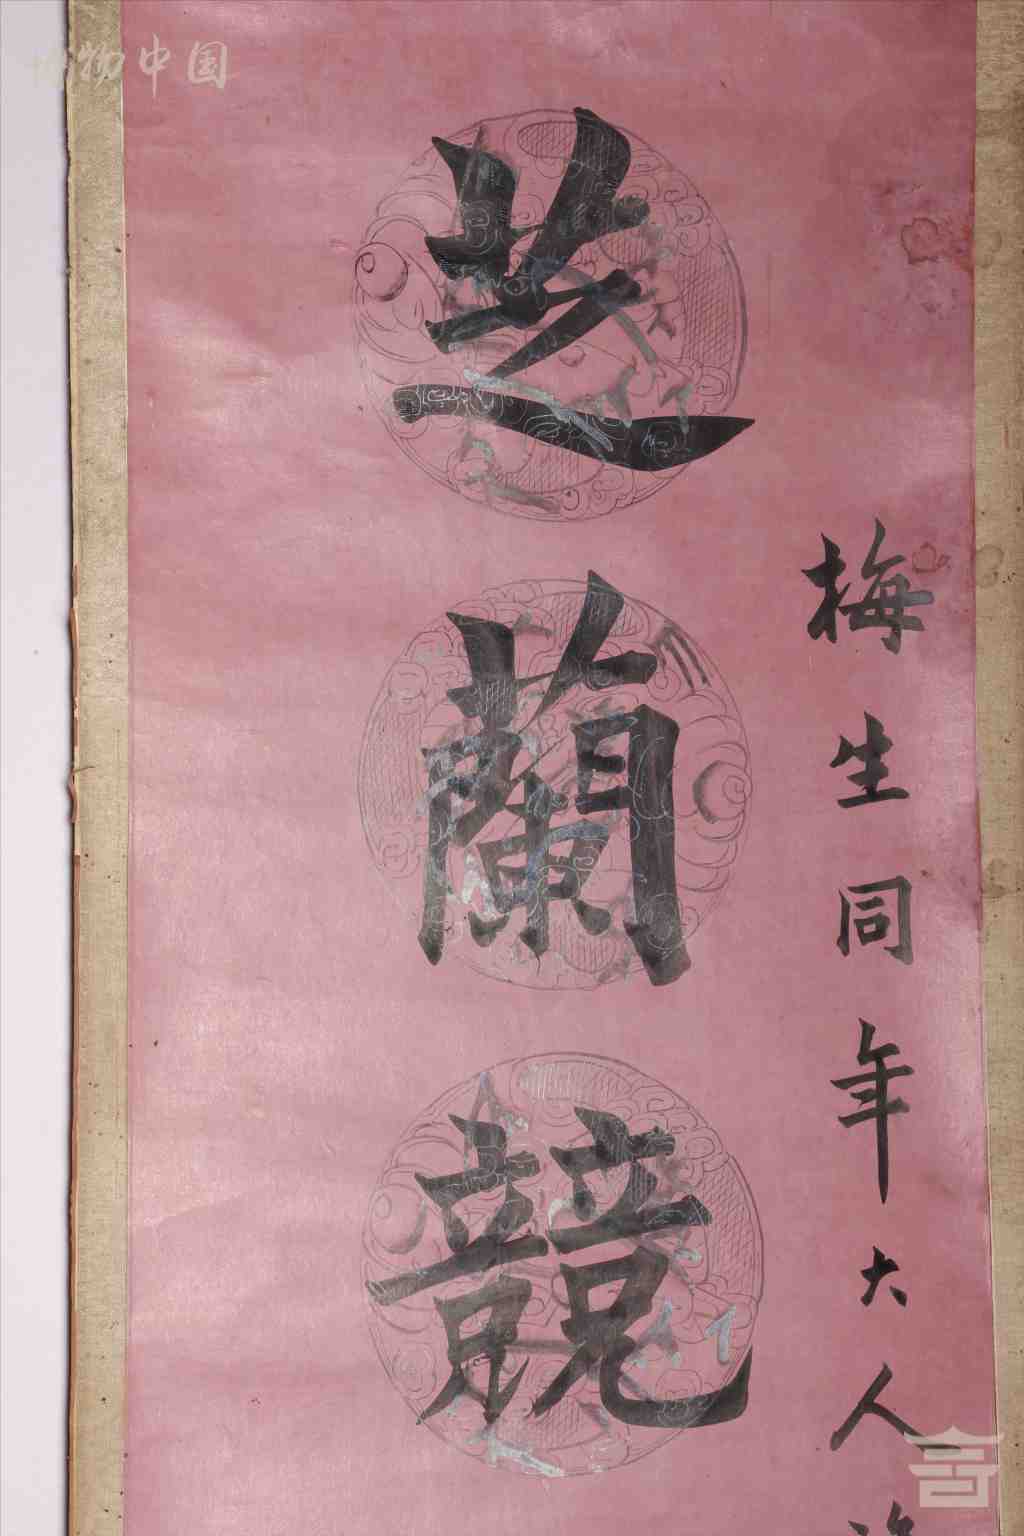 梅生同年大人
芝蘭競
博物中国